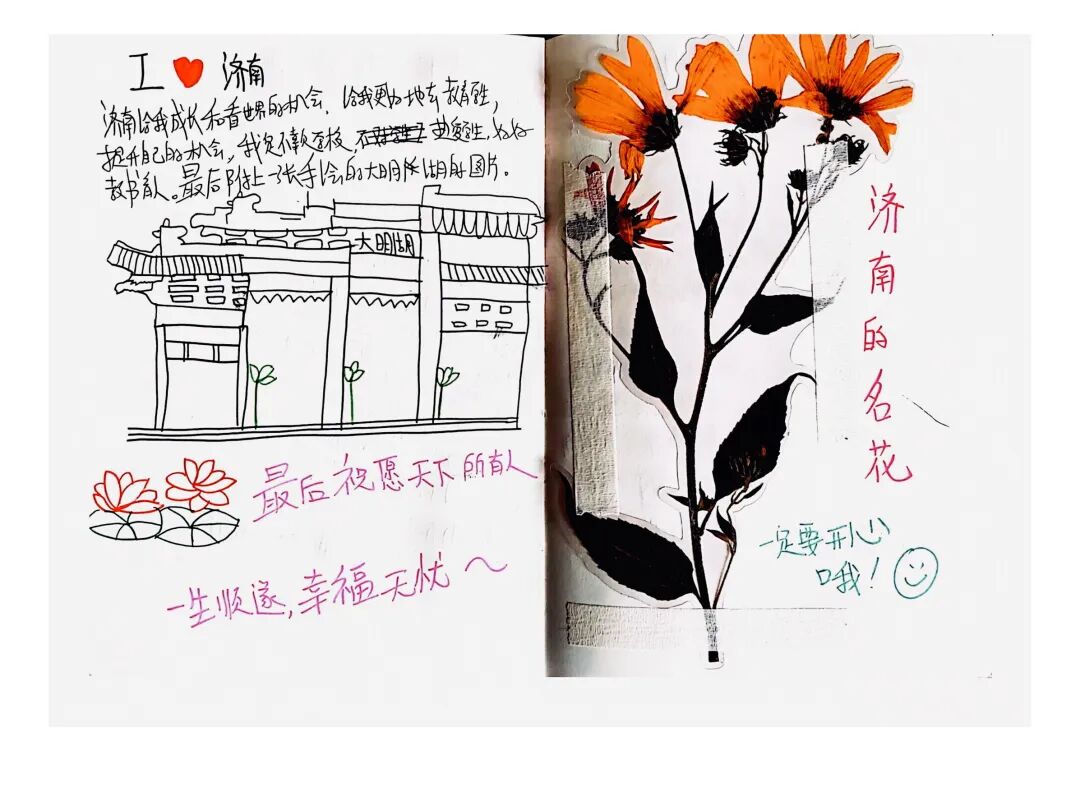 I ❤ 济南
济南给我成长和看世界的机会，给我更好地去教育学生，
提升自己的机会，我定不负学校，学生，好好
教书育人。最后附上一张手绘的大明湖的图片。
大明湖
最后祝愿天下所有人
一生顺遂，幸福无忧～
济南的名花
一定要开心
哦！